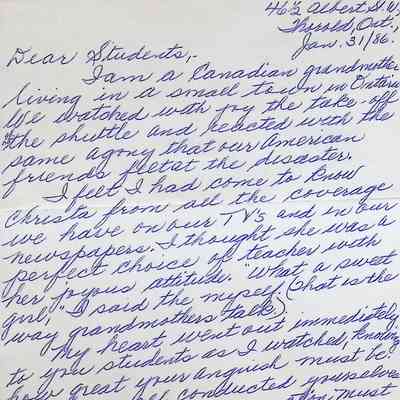 46½ Albert St. W.
Thorold, Ont.,
Jan. 31/86.
Dear Students,-
I am a Canadian grandmother
living in a small town in Ontario
We watched with joy the take-off
of the shuttle and reacted with the
same agony that our American
friends felt at the disaster.
I felt I had come to know
Christa from all the coverage
we have on our TV's and in our
newspapers. I thought she was a
perfect choice of teacher with
her joyous attitude. "What a sweet
girl," I said the myself. (That is the
way grandmothers talk).
My heart went out immediately
to you students as I watched, knowing
how great your anguish must be.
conducted yourselves
must